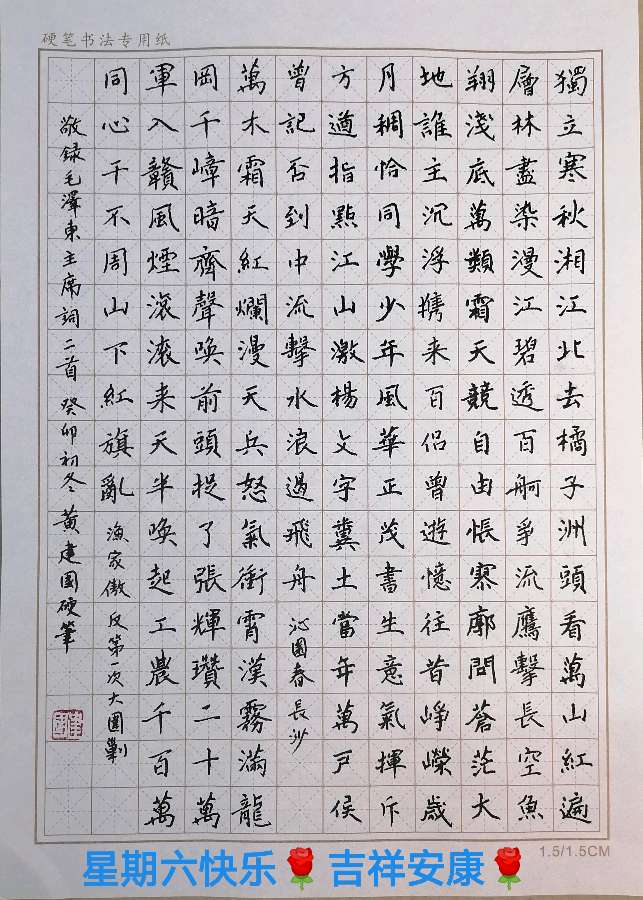 硬笔书法专用纸
獨立寒秋湘江北去橘子洲頭看萬山紅遍
層林盡染漫江碧透百舸爭流鷹擊長空魚
翔淺底萬類霜天競自由悵寥廓問蒼茫大
地誰主沉浮携来百侶曾遊憶往昔崢嶸歲
月稠恰同學少年風華正茂書生意氣揮斥
方遒指點江山激楊文字糞土當年萬戶侯
曾記否到中流擊水浪遏飛舟 沁園春 長沙
萬木霜天紅爛漫天兵怒氣衝霄漢霧滿龍
岡千嶂暗齊聲喚前頭捉了張輝瓚二十萬
軍入贛風煙滾滾来天半喚起工農千百萬
同心干不周山下紅旗亂 漁家傲 反第一次大圍剿
敬録毛澤東主席詞二首 癸卯初冬 黃建國硬筆
1.5/1.5CM
星期六快乐🌹吉祥安康🌹